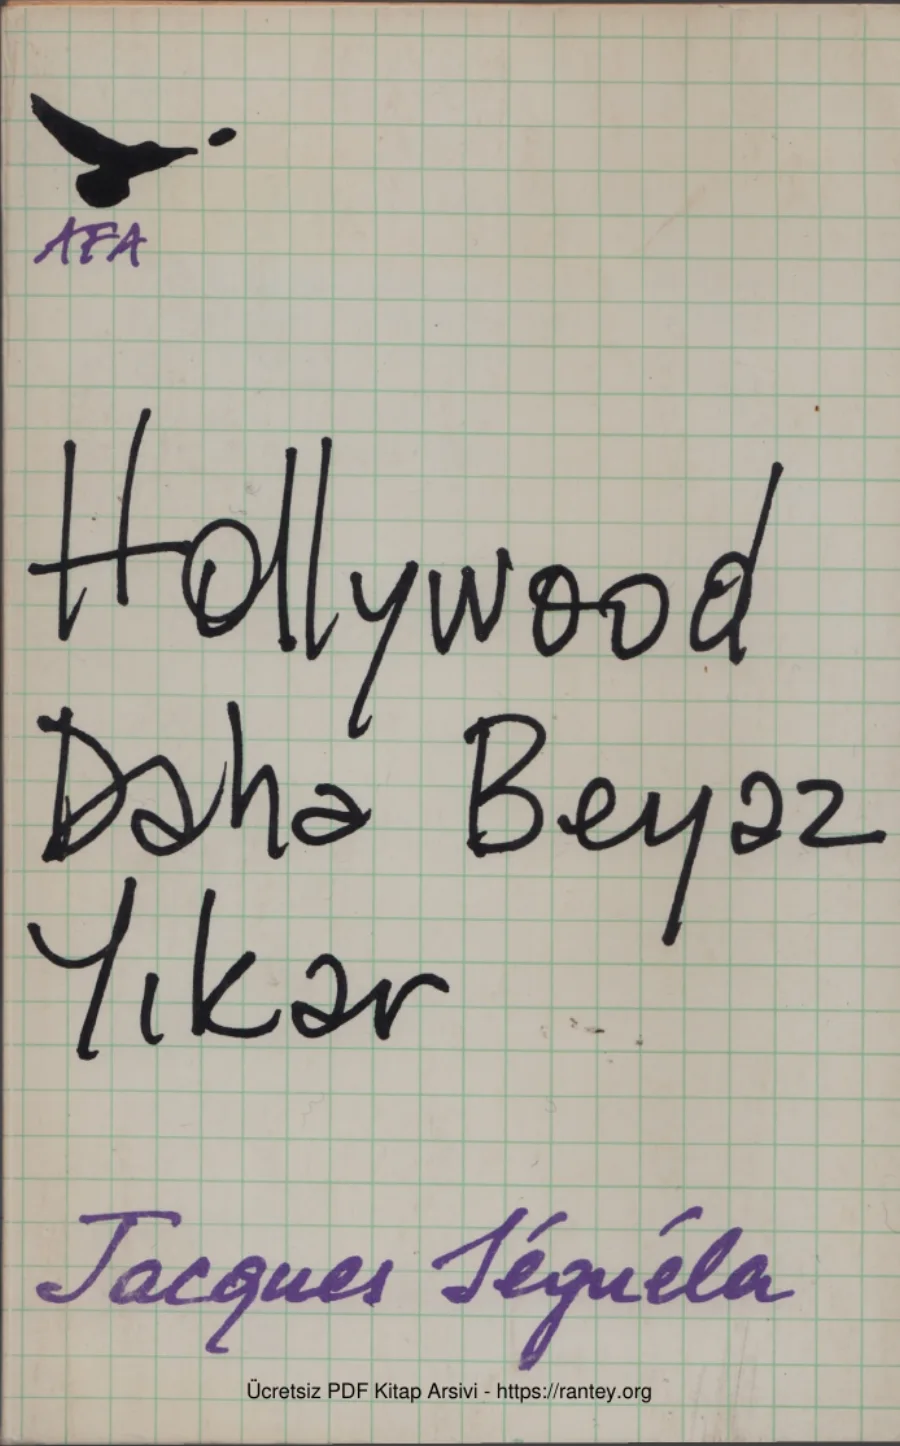 AFA
Hollywood
Daha Beyaz
Yıkar
Jacques Séguéla
Ücretsiz PDF Kitap Arsivi - https://rantey.org